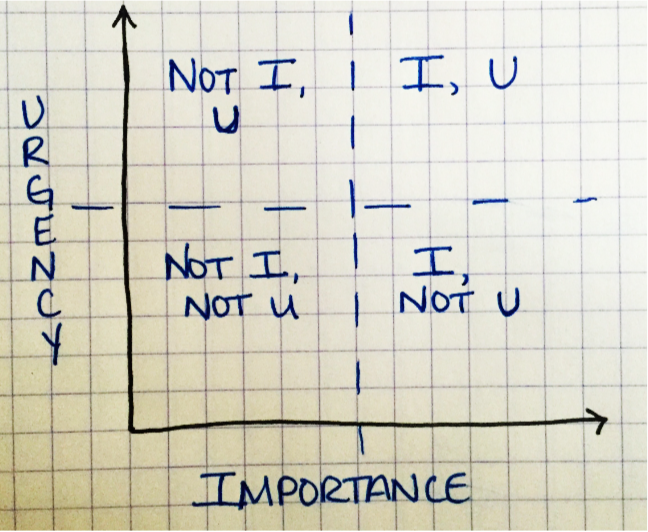 URGENCY
NOT I,
U
I, U
NOT I,
NOT U
I,
NOT U
IMPORTANCE